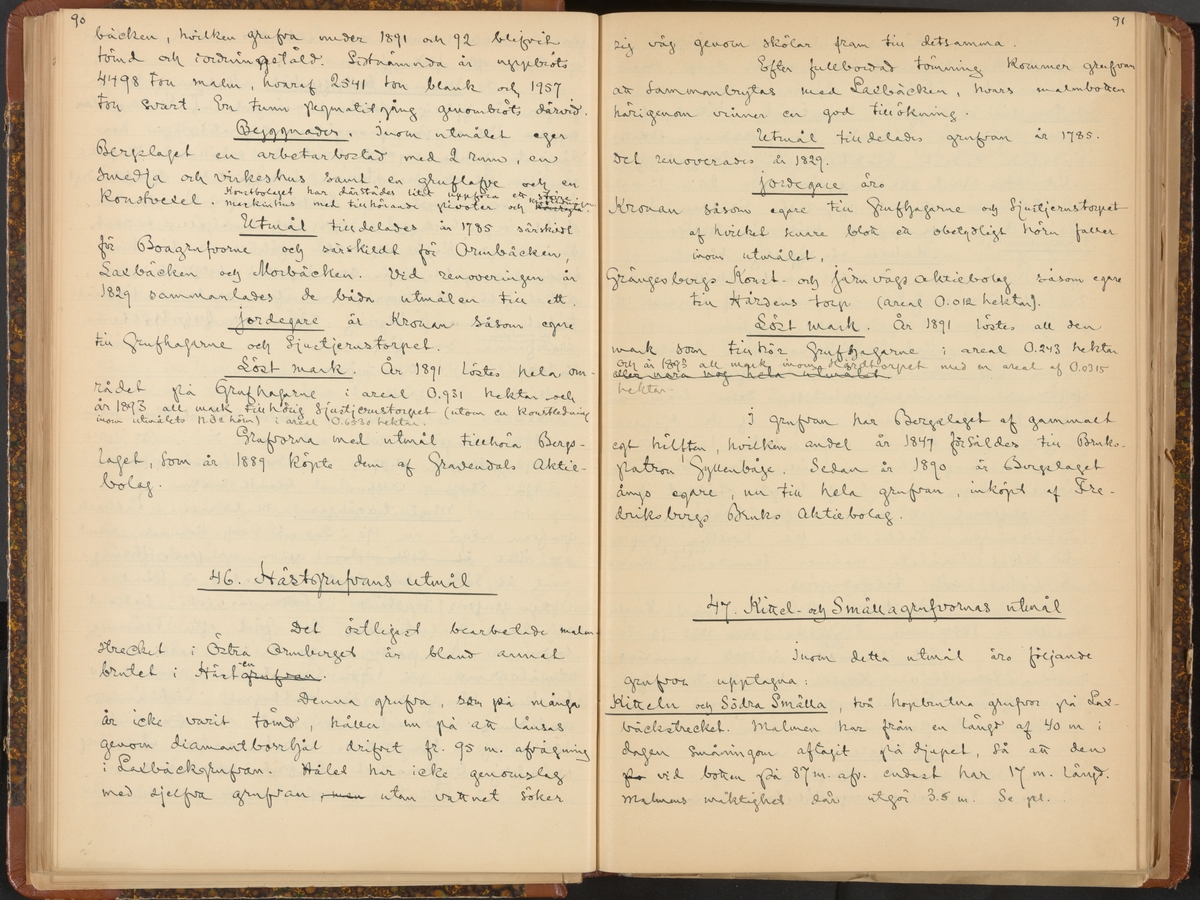 90
bäcken, hvilken grufva under 1891 och 92 blifvit
tömd och iordningställd. Sistnämnda år uppbröts
4498 ton malm, hvaraf 2541 ton blank och 1957
ton svart. En tunn pegmatitgång genombröts därvid.
Byggnader. Inom utmålet eger
Bergslaget en arbetarbostad med 2 rum, en
smedja och virkeshus samt en gruflafve och en
Konstbolaget har därstädes låtit uppföra ett
konsthvel. maskinhus med tillhörande pivoter och
Utmål tilldelades år 1785 särskildt
för Boagrufvorna och särskildt för Ormbäcken,
Laxbäcken och Morbäcken. Vid renoveringen år
1829 sammanlades de båda utmålen till ett.
Jordegare är Kronan såsom egare
till Grufhagarne och Ljustjernstorpet.
Löst mark. År 1891 löstes hela om-
rådet på Grufhagarne i areal 0.931 hektar och
år 1893 all mark tillhörig Ljustjernstorpet (utom en konstledning
inom utmålets n.ö. hörn) i areal 0.6830 hektar.
Grufvorna med utmål tillhöra Bergs-
laget, som år 1889 köpte dem af Gravendals Aktie-
bolag.
46. Hästgrufvans utmål
Det östligast bearbetade malm-
strecket i Östra Ormberget är bland annat
brutet i Hästgrufvan.
Denna grufva, som på många
år icke varit tömd, hålles nu på att länsas
genom diamantborrhål drifvet fr. 95 m. afvägning
i Laxbäcksgrufvan. Hålet har icke genomslag
med sjelfva grufvan, men utan vattnet söker
91
sig väg genom skölar fram till detsamma.
Efter fullbordad tömning kommer grufvan
att sammanbrytas med Laxbäcken, hvars malmbotten
härigenom vinner en god tillökning.
Utmål tilldelades grufvan år 1785.
Det renoverades år 1829.
Jordegare äro
Kronan såsom egare till Grufhagarne och Ljustjernstorpet
af hvilket senare blott ett obetydligt hörn faller
inom utmålet,
Grängesbergs Konst- och Järnvägs Aktiebolag såsom egare
till Hårdens torp (areal 0.012 hektar).
Löst mark. År 1891 löstes all den
mark som tillhör Grufhagarne i areal 0.243 hektar
och år 1893 all mark inom Hårdtorpet med en areal af 0.0315
eller nära nog hela utmålet
hektar.
I grufvan har Bergslaget af gammalt
egt hälften, hvilken andel år 1847 försåldes till Bruks-
patron Gyllenbåge. Sedan år 1890 är Bergslaget
ånyo egare, nu till hela grufvan, inköpt af Fre-
driksbergs Bruks Aktiebolag.
47. Kittel- och Smällagrufvornas utmål
Inom detta utmål äro följande
grufvor upptagna:
Kitteln och Södra Smälla, två hopbrutna grufvor på Lax-
bäckstrecket. Malmen har från en längd af 40 m i
dagen småningom aftagit på djupet, så att den
på vid botten på 87 m. afv. endast har 17 m. längd.
Malmens mäktighet där utgör 3.5 m. Se pl.